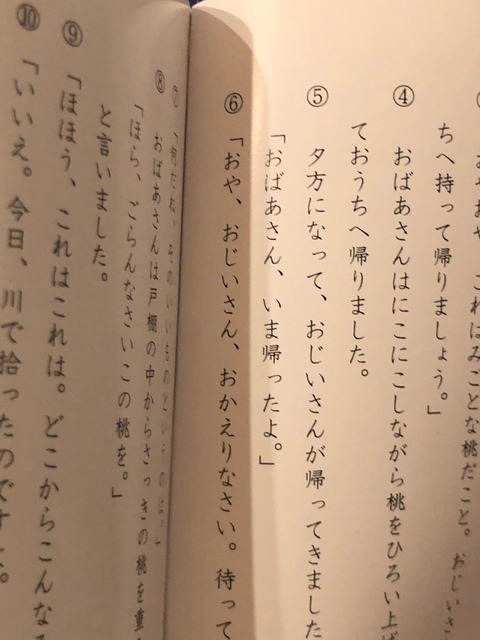 おやおや、これはみごとな桃だこと。おじいさ
ちへ持って帰りましょう。」
④ おばあさんはにこにこしながら桃をひろい上
ておうちへ帰りました。
⑤ 夕方になって、おじいさんが帰ってきました
「おばあさん、いま帰ったよ。」
⑥ 「おや、おじいさん、おかえりなさい。待って
⑦ 「何だね、そのいいものというのは。」
⑧ おばあさんは戸棚の中からさっきの桃を重
「ほら、ごらんなさいこの桃を。」
と言いました。
⑨ 「ほほう、これはこれは。どこからこんな
⑩ 「いいえ。今日、川で拾ったのですよ。